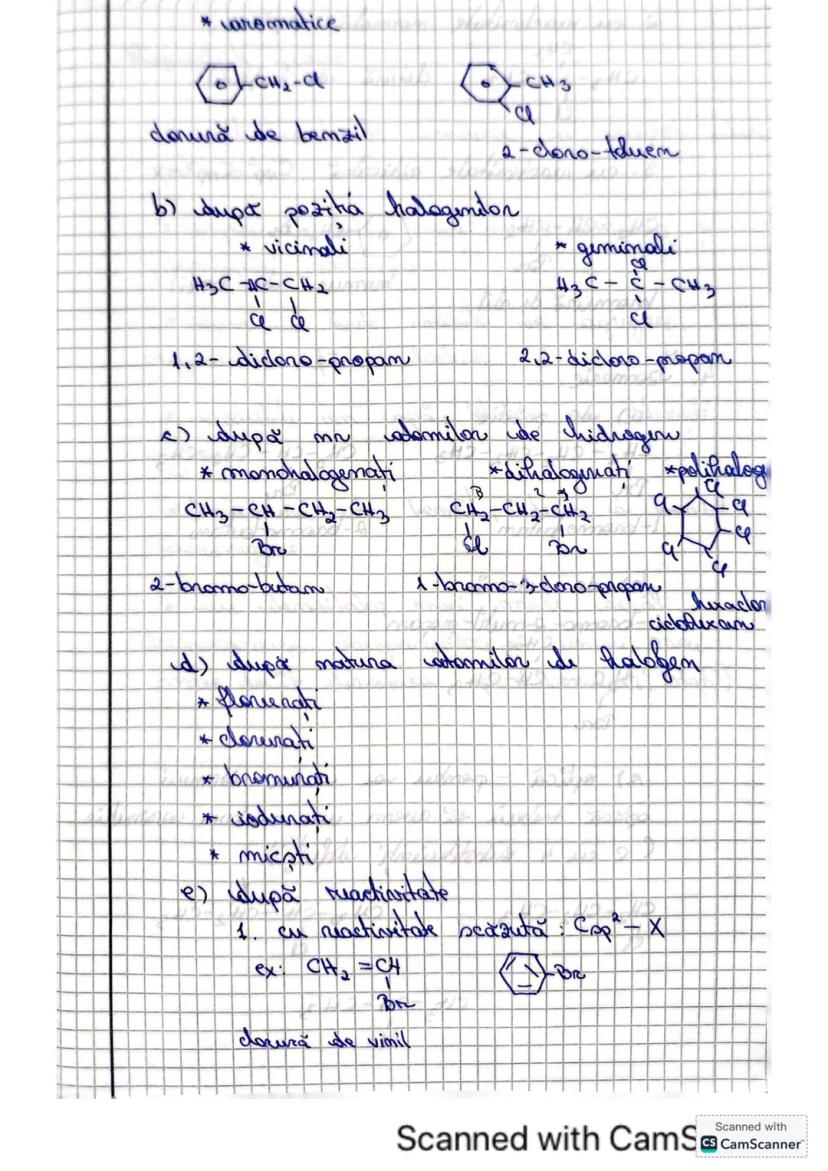 * aromatice
CH2-Cl CH3
Cl
clorură de benzil
2-cloro-toluen
b) după poziția halogenilor
* vicinali * geminali
Cl
H3C-HC-CH2 H3C-C-CH3
Cl Cl Cl
1,2-dicloro-propan 2,2-dicloro-propan
c) după nr atomilor de hidrogen
* monohalogenați * dihalogenați * polihalog
3 2 1 Cl
CH3-CH-CH2-CH3 CH2-CH2-CH2 Cl Cl
Cl
Br Cl Br Cl Cl
2-bromo-butan 1-bromo-3-cloro-propan hexaclor
ciclohexan
d) după natura atomilor de halogen
* florurați
* clorurați
* bromurați
* iodurați
* micști
e) după reactivitate
1. cu reactivitate scăzută: Csp²-X
ex: CH2=CH Br
Br
clorură de vinil
Scanned with CamS
Scanned with
CS CamScanner